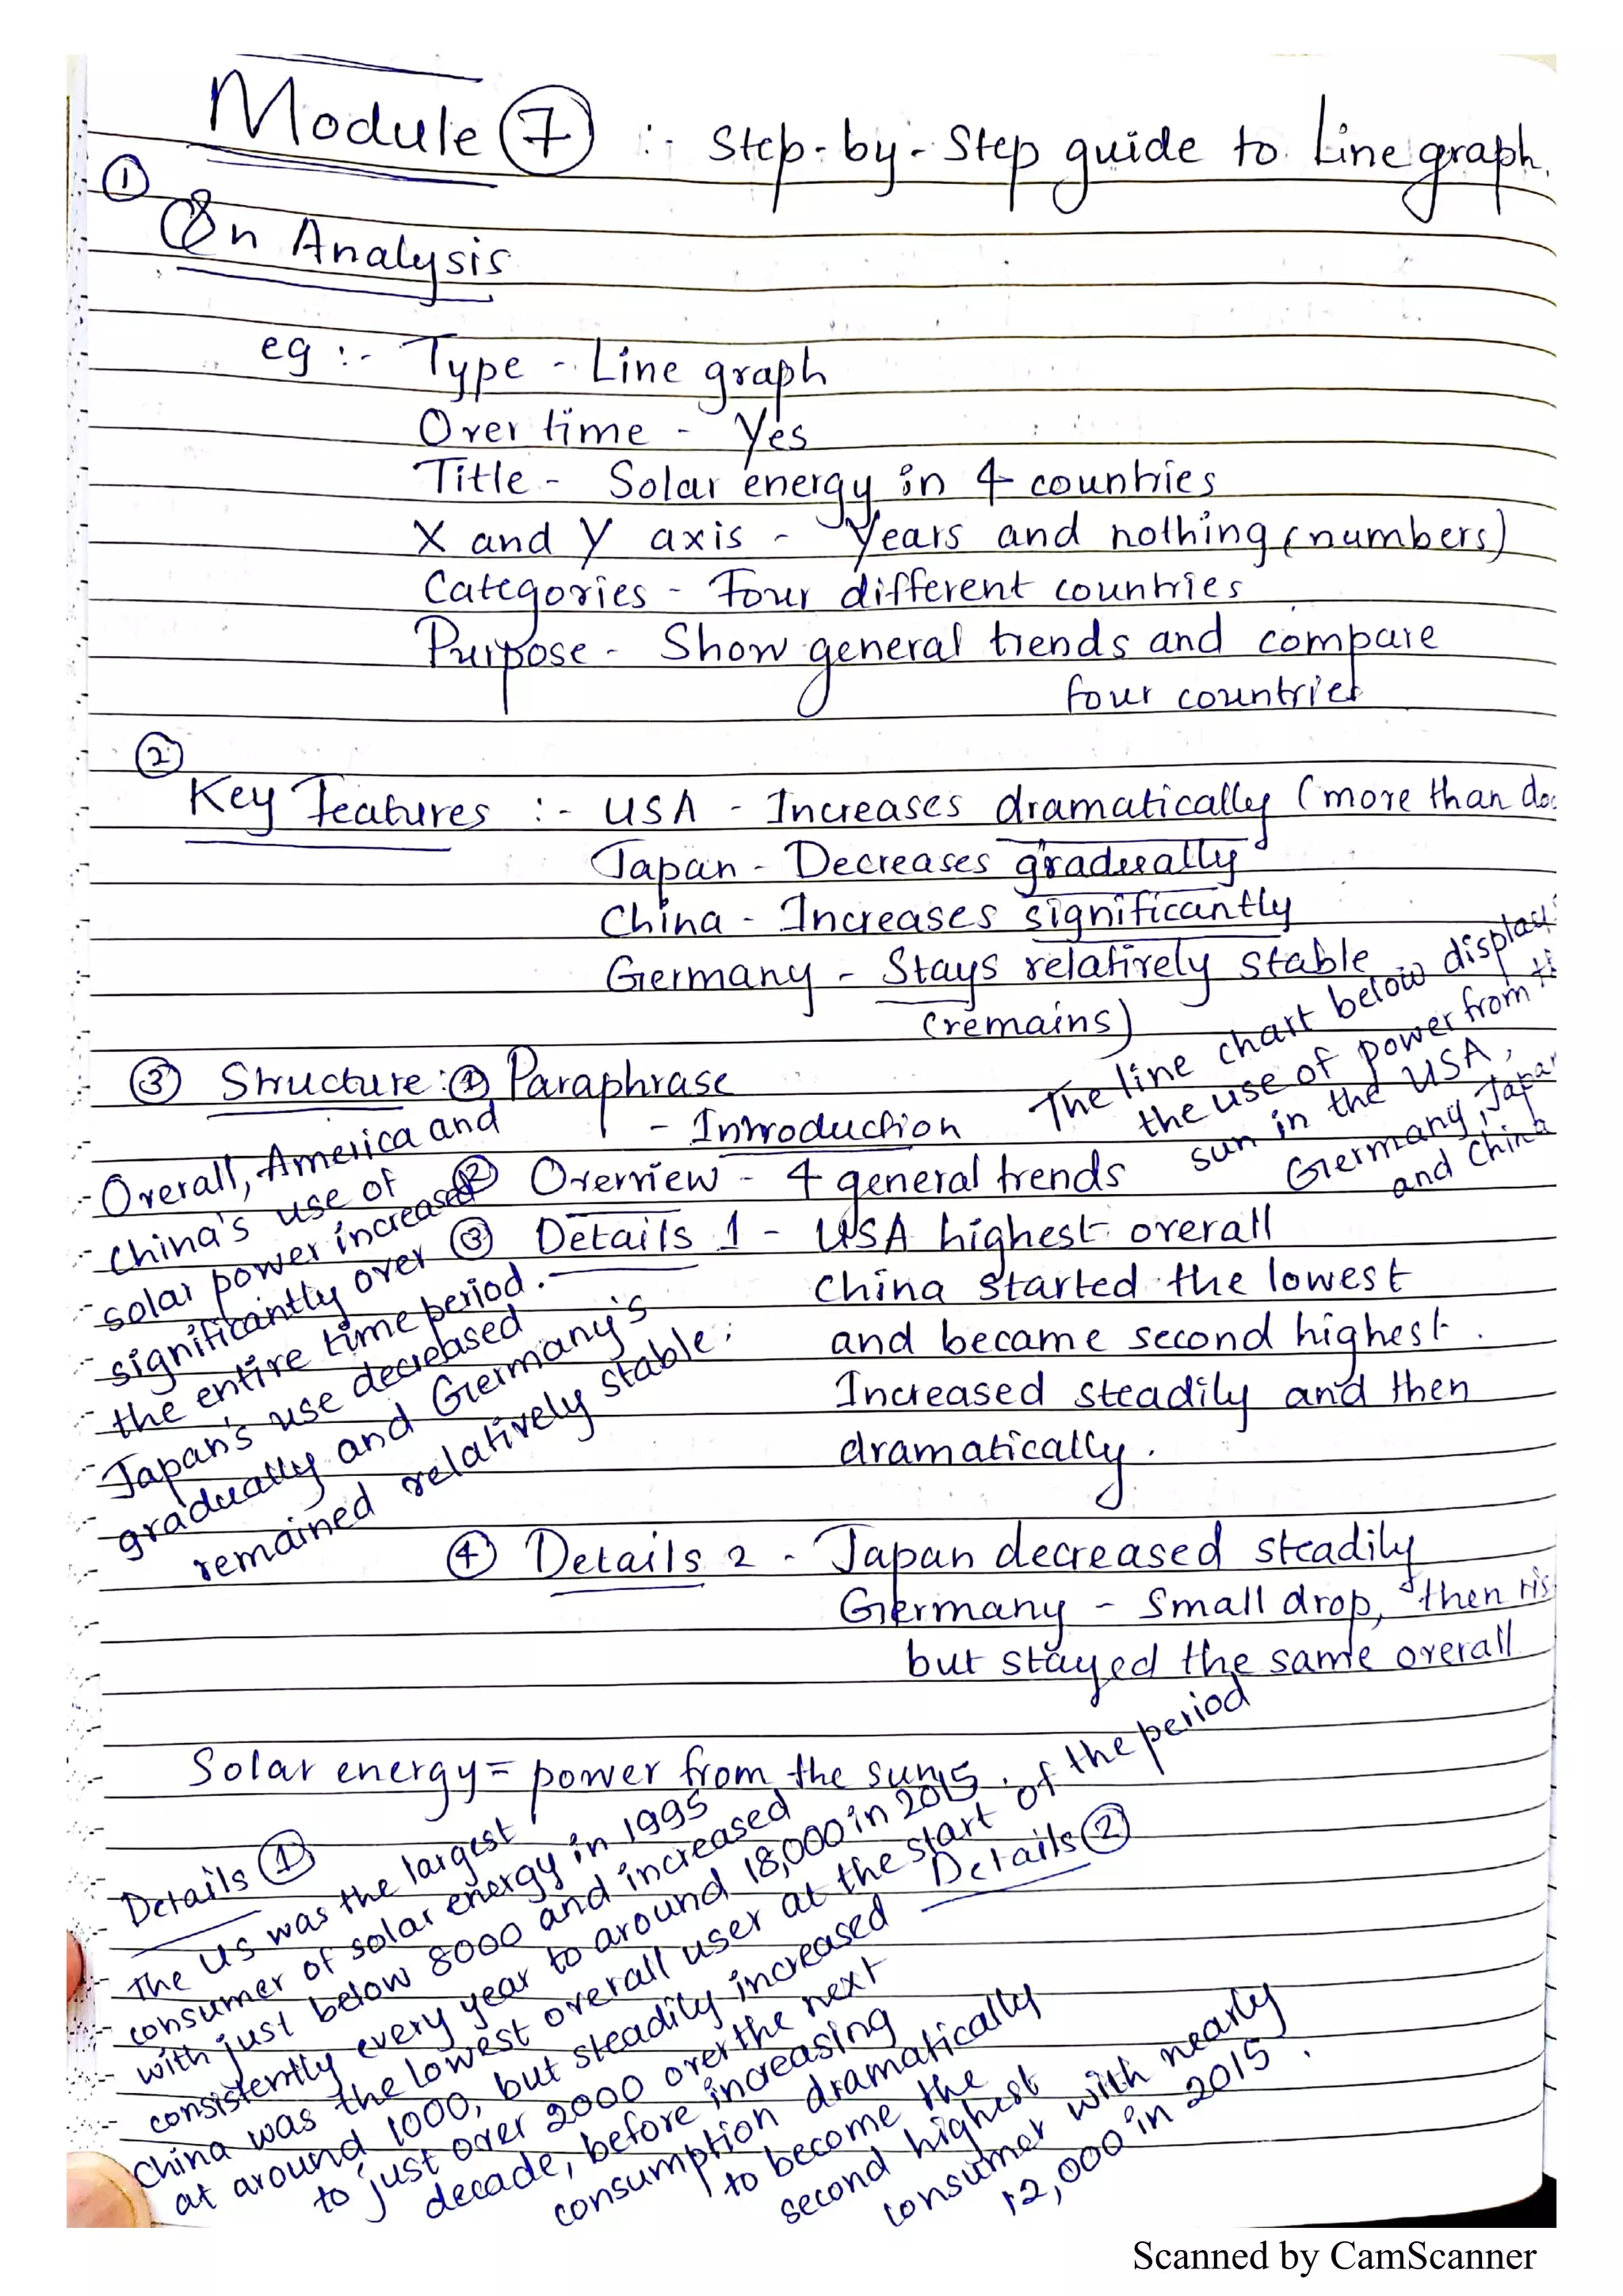 Module 7 :- Step-by-Step guide to Line graph.
① Qn Analysis
eg :- Type - Line graph
Over time - Yes
Title - Solar energy in 4 countries
X and Y axis - Years and nothing (numbers)
Categories - Four different countries
Purpose - Show general trends and compare
four countries
②
Key Features :- USA - Increases dramatically (more than
Japan - Decreases gradually
China - Increases significantly
Germany - Stays relatively stable
(remains)
③ Structure: ① Paraphrase
- Introduction
The line chart below
the use of power from
sun in the USA,
Germany, Japan
and China
② Overview - 4 general trends
Overall, America and
China's use of
solar power increased
significantly over
the entire time period.
Japan's use decreased
gradually and Germany's
remained relatively stable.
③ Details 1 - USA highest overall
China started the lowest
and became second highest.
Increased steadily and then
dramatically.
④ Details 2 - Japan decreased steadily
Germany - Small drop, then
but stayed the same overall
Solar energy = power from the sun
Details ①
The US was the largest
consumer of solar energy in 1995
with just below 8000 and increased
consistently every year to around 18,000 in 2015.
China was the lowest overall user at the start of the period
at around 1000, but steadily increased
to just over 2000 over the next
decade, before increasing
consumption dramatically
to become the
second highest
consumer with nearly
12,000 in 2015.
Details ②
Scanned by CamScanner